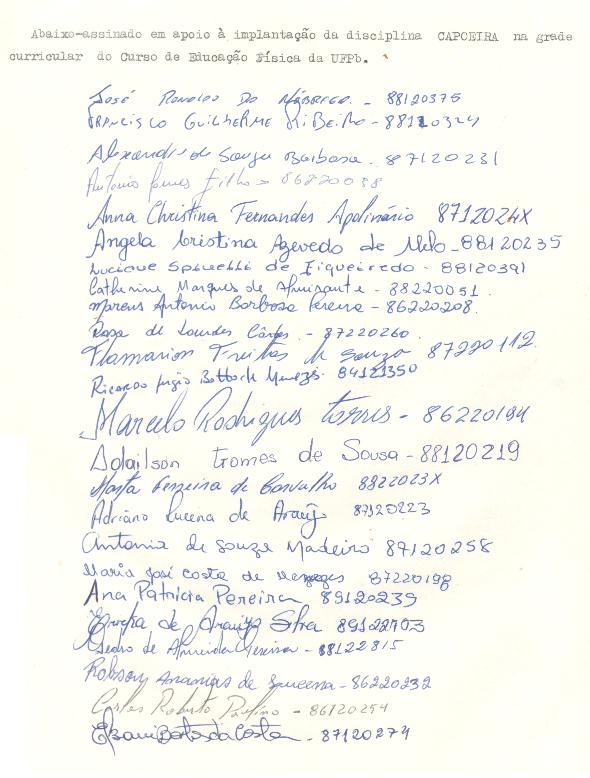 Abaixo-assinado em apoio à implantação da disciplina CAPOEIRA na grade
curricular do Curso de Educação Física da UFPb.
José Ronaldo Do Nóbrega - 88120375
FRANCISCO GUILHERME RIBEIRO - 88120324
Alexandre de Souza Barbosa. 87120231
Antonio Gomes Filho - 86220038
Anna Christina Fernandes Apolinário 8712024X
Angela Cristina Azevedo de Melo - 88120235
Luciane Spinelli de Figueiredo - 88120391
Catherine Marques de Almirante - 88220051.
Marcus Antonio Barbosa Pereira - 86220208.
Rosa de Lourdes - 87220260.
Flamarion Freitas de Souza 87220112.
Ricardo Sérgio Botto de Menezes. 84123350
Marcelo Rodrigues Torres - 86220194
Adailson Gomes de Sousa - 88120219
Marta Ferreira de Carvalho 8822023X
Adriano Lucena de Araújo 87120223
Antonia de Souza Madeiro 87120258
Maria José Costa de Menezes 87220198
Ana Patrícia Pereira 89120239
de Araújo Silva 89122703
Pedro de Almeida Pereira - 88122815
Robson Ananias de - 86220232
Carlos Roberto - 86120254
Costa - 87120274